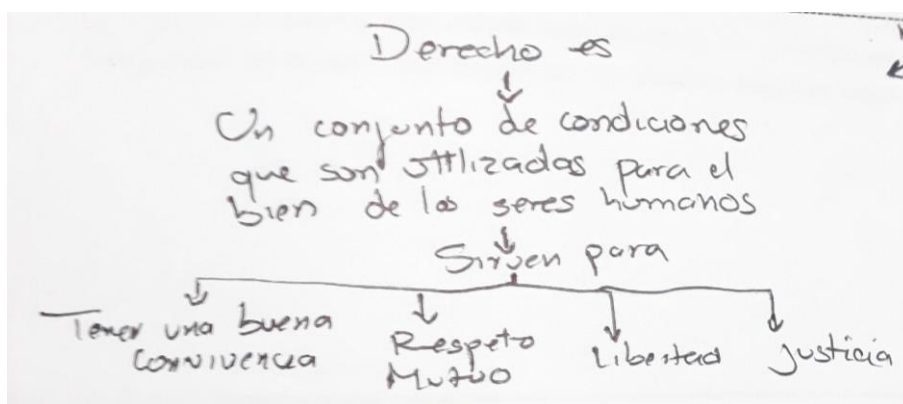 Derecho es
Un conjunto de condiciones
que son utilizadas para el
bien de los seres humanos
Sirven para
Tener una buena
convivencia
Respeto
Mutuo
Libertad
justicia